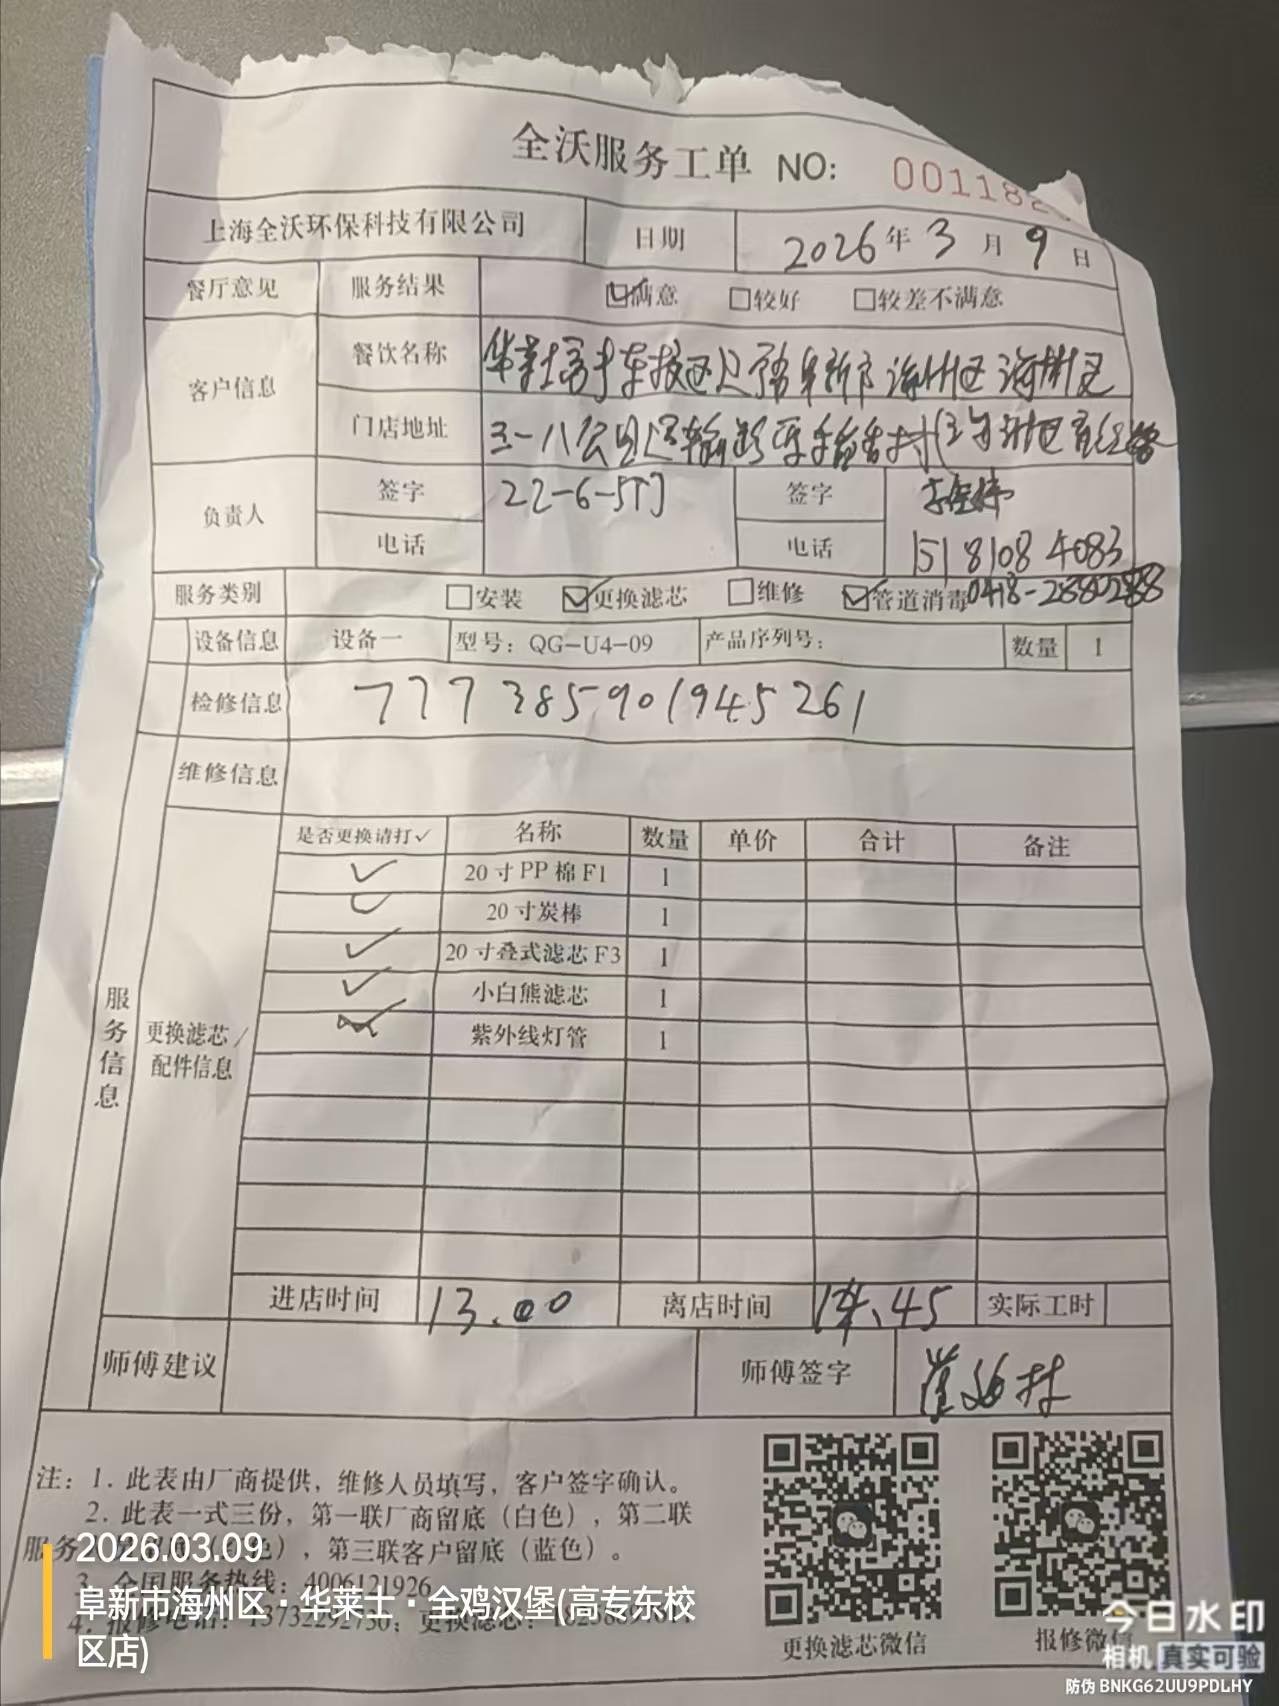 全沃服务工单 NO: 001182
上海全沃环保科技有限公司 日期 2026年3月9日
餐厅意见 服务结果 ☑满意 □较好 □较差不满意
客户信息 餐饮名称 华莱士高专东校区店 阜新市海州区海州区
门店地址 三一八公里运输
负责人 签字 22-6-5门 签字
电话 电话 15181084083
服务类别 □安装 ☑更换滤芯 □维修 ☑管道消毒 0418-2880288
设备信息 设备一 型号: QG-U4-09 产品序列号: 数量 1
检修信息 777385901945261
维修信息
服务信息
更换滤芯/配件信息
是否更换请打✓ 名称 数量 单价 合计 备注
✓ 20寸PP棉F1 1
✓ 20寸炭棒 1
✓ 20寸叠式滤芯F3 1
✓ 小白熊滤芯 1
✓ 紫外线灯管 1
进店时间 13.00 离店时间 14.45 实际工时
师傅建议 师傅签字
注: 1. 此表由厂商提供, 维修人员填写, 客户签字确认。
2. 此表一式三份, 第一联厂商留底(白色), 第二联
服务 色), 第三联客户留底(蓝色)。
3. 全国服务热线: 4006121926
4. 报修电话: 13732292730; 更换滤芯:
更换滤芯微信
报修微信
2026.03.09
阜新市海州区·华莱士·全鸡汉堡(高专东校
区店)
今日水印
相机 真实可验
防伪 BNKG62UU9PDLHY